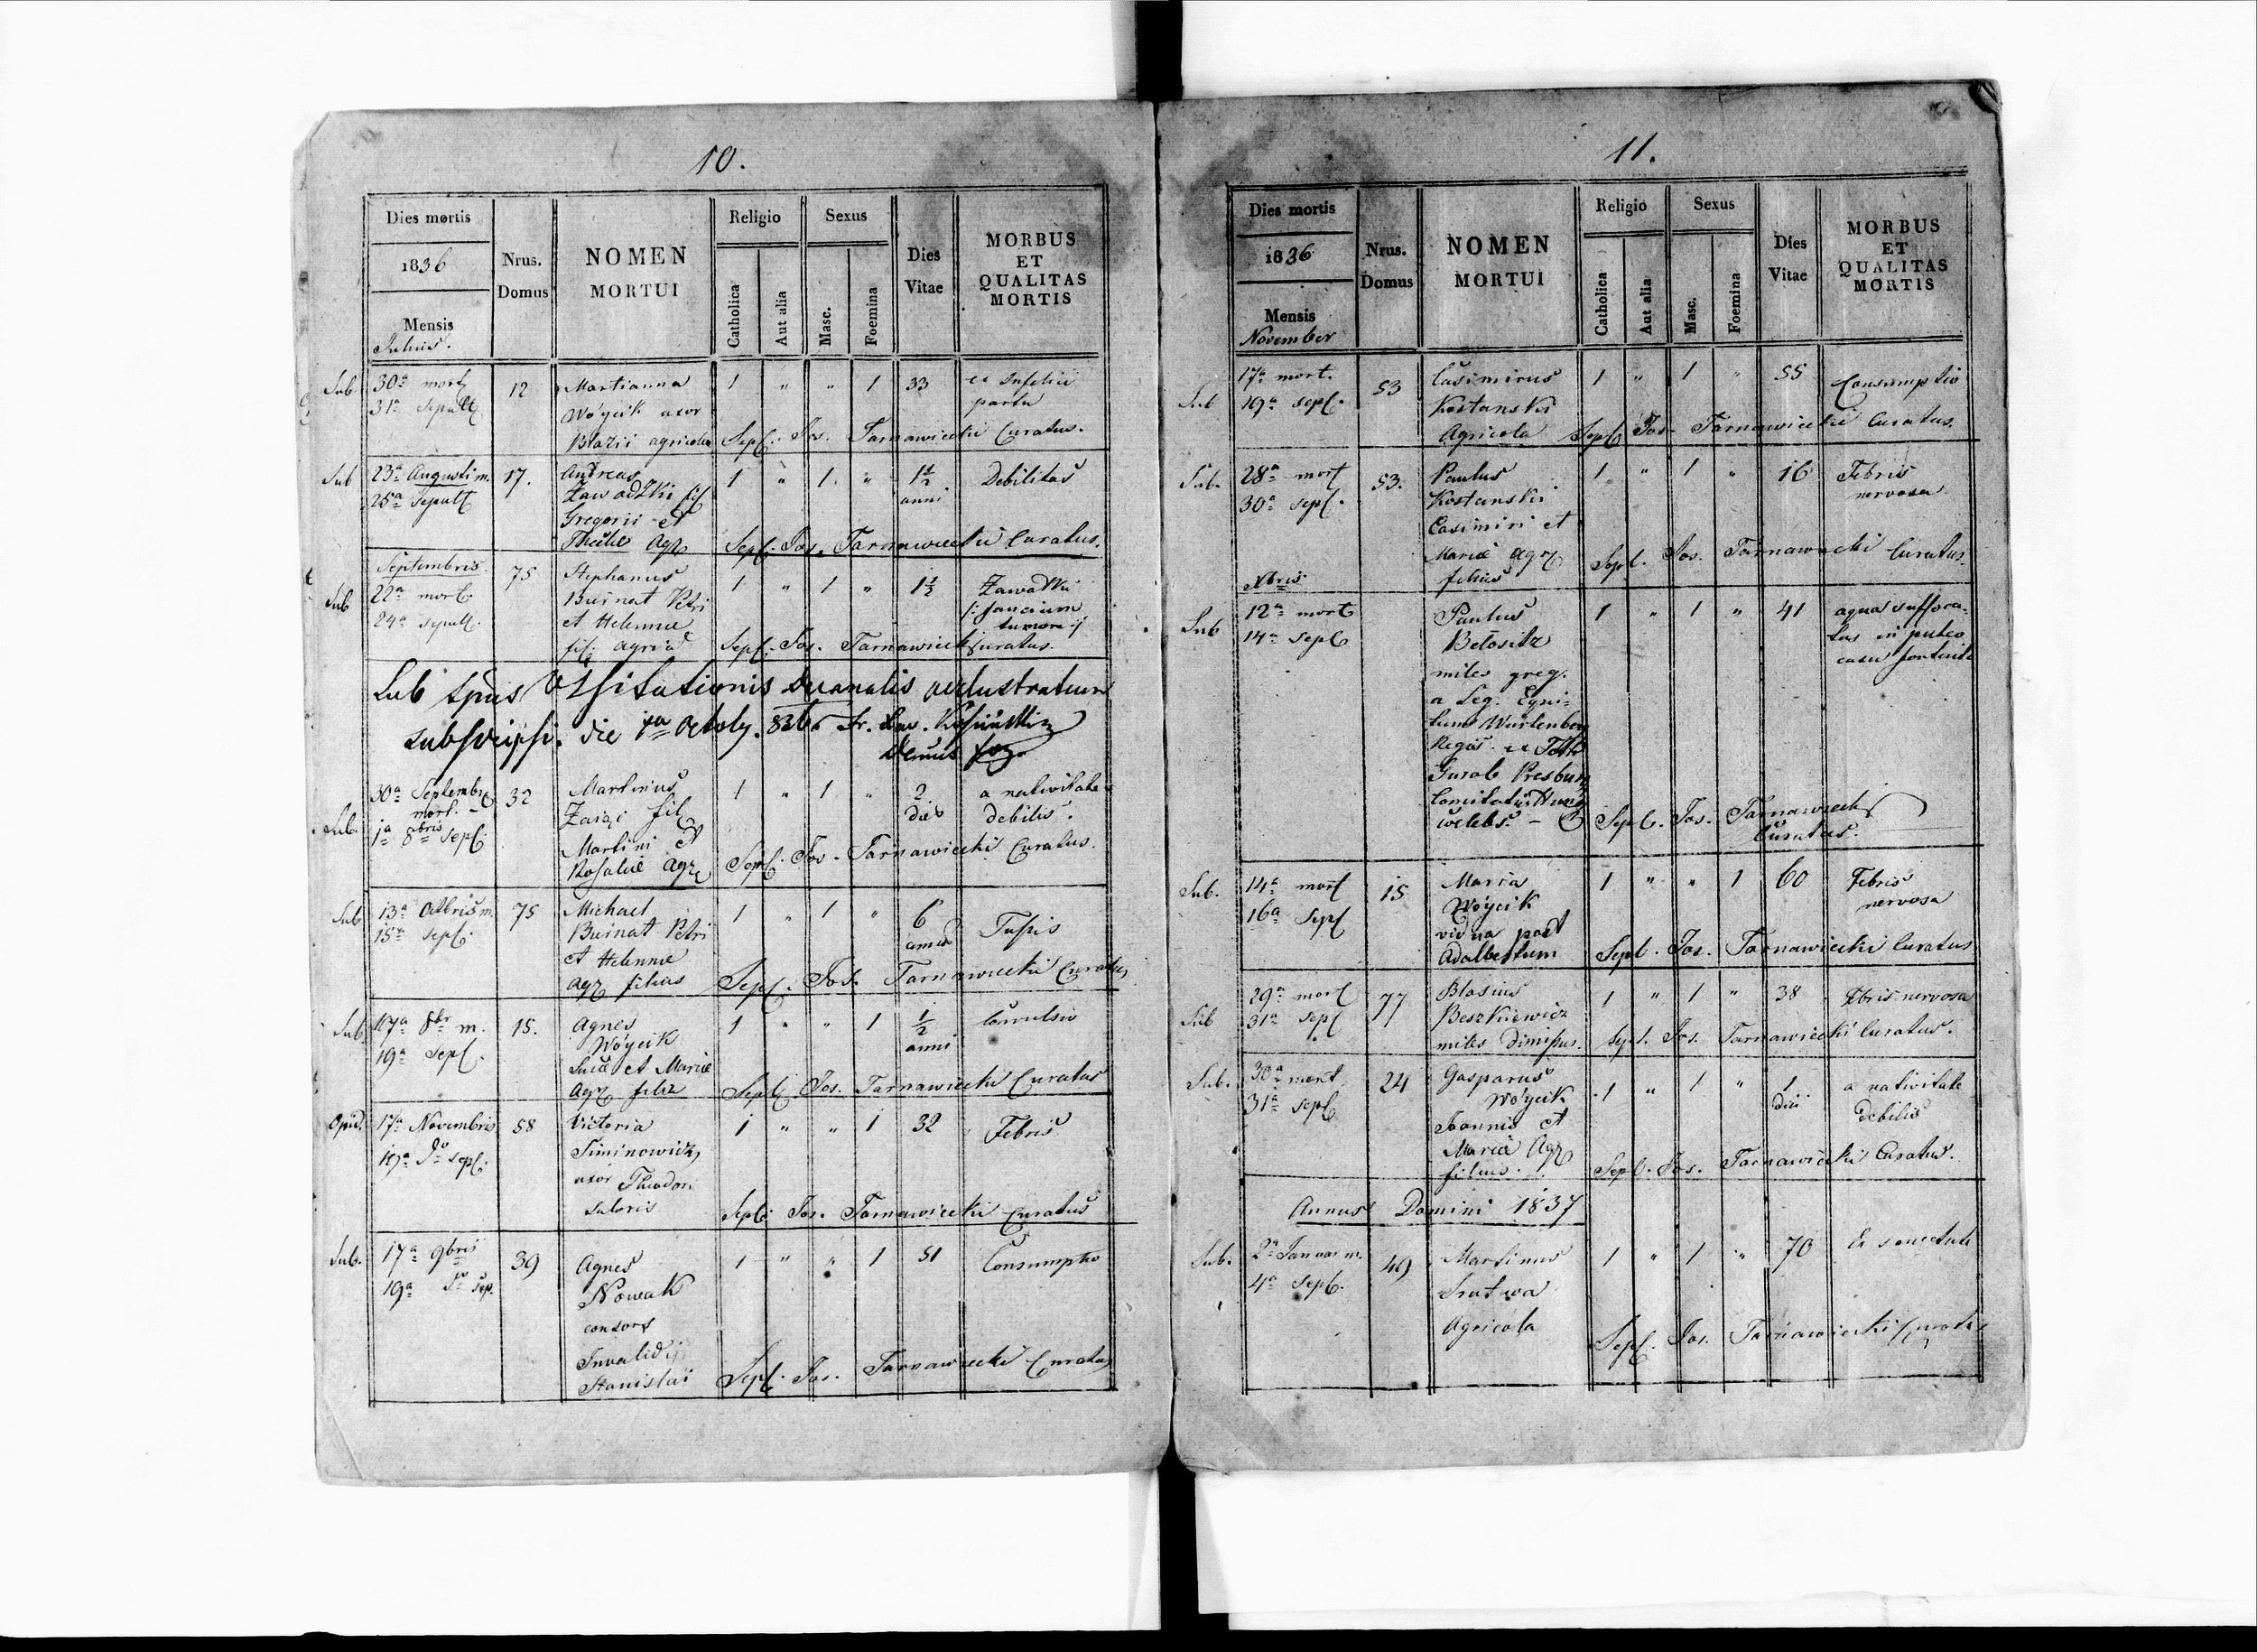 10.
Dies mortis
1836
Mensis
Julius.
Nrus.
Domus
NOMEN
MORTUI
Religio
Catholica
Aut alia
Sexus
Masc.
Foemina
Dies
Vitae
MORBUS
ET
QUALITAS
MORTIS
Sub 30a mort 12 Martianna 1 " " 1 33 ex infelici
31a Sepult Wóycik uxor partu
Blazii agricola Sepl. Jos. Tarnawiecki Curatus.
Sub 23a Augusti m. 17. Andreas 1 " 1. " 1½ Debilitas
25a Sepult Zawadzki fil anni
Gregorii et
Theclae Agr Sepl. Jos. Tarnawiecki Curatus.
Septembris 75 Stephanus 1 " 1 " 1½ Zawałki
Sub 22a mort. Buinat Petri /: faucium
24a sepult. et Helennae tumore :/
fil. agric Sepl. Jos. Tarnawiecki Curatus.
Sub Visitationis Decanalis
subscripsi. die 1a 836
30a Septembr 32 Martinus 1 " 1 " 2 a nativitate
mort. - Zaizi fil dies debilis.
Sub. 1a 8bris sepl. Martini et
Rosaliae Agr Sepl. Jos. Tarnawiecki Curatus.
Sub 13a Octbris m. 75 Michael 1 " 1 " 6 Tussis
15a sepl. Buinat Petri
et Helennae
agr filius Sepl. Jos. Tarnawiecki Curatus
Sub 17a 8br m. 15. Agnes 1 " " 1 ½
19a sepl. Wóycik anni
Lucae et Mariae
Agr filia Sepl. Jos. Tarnawiecki Curatus
Opid. 17a Novembris 58 Victoria 1 " " 1 32 Febris
19a do sepl. Siminowicz
uxor Theodori
sutoris Sepl. Jos. Tarnawiecki Curatus
Sub. 17a 9bris 39 Agnes 1 " " 1 51 Consumptio
19a do sep. Nowak
consors
Invalidi
Stanislai Sepl. Jos. Tarnawiecki Curatus
11.
Dies mortis
1836
Mensis
November
Nrus.
Domus
NOMEN
MORTUI
Religio
Catholica
Aut alia
Sexus
Masc.
Foemina
Dies
Vitae
MORBUS
ET
QUALITAS
MORTIS
17a mort. 53 Casimirus 1 " 1 " 55 Consumptio
Sub 19a sepl. Kostanski
Agricola Sepl Jos. Tarnawiecki Curatus.
Sub. 28a mort 53. Paulus 1 " 1 " 16 Febris
30a sepl. Kostanski nervosa
Casimiri et
Mariae Agr Sepl. Jos. Tarnawiecki Curatus.
Xbris filius
Sub 12a mort Paulus 1 " 1 " 41 aqua suffoca-
14a sepl Betositz tus in puteo
miles greg. casu fortuito
a Leg. Equi-
tum Würtenberg
Regis ex
Gurab Presburg
Comitatus Hung
caelebs. Sepl. Jos. Tarnawiecki
Curatus.
Sub. 14a mort 15 Maria 1 " " 1 60 Febris
16a sepl Wóycik nervosa
vidua post
Adalbertum Sepl. Jos. Tarnawiecki Curatus
29a mort 77 Blasius 1 " 1 " 38 Febris nervosa
Sub 31a sepl Beszkiewicz
miles dimissus. Sepl. Jos. Tarnawiecki Curatus.
Sub. 30a mort 24 Gasparus 1 " 1 " 1 a nativitate
31a sepl Wóycik diei debilis
Joannis et
Mariae Agr
filius. Sepl. Jos. Tarnawiecki Curatus.
Annus Domini 1837
Sub. 2a Januar m. 49 Martinus 1 " 1 " 70 Ex senectute
4a sepl. Srutwa
Agricola Sepl. Jos. Tarnawiecki Curatus